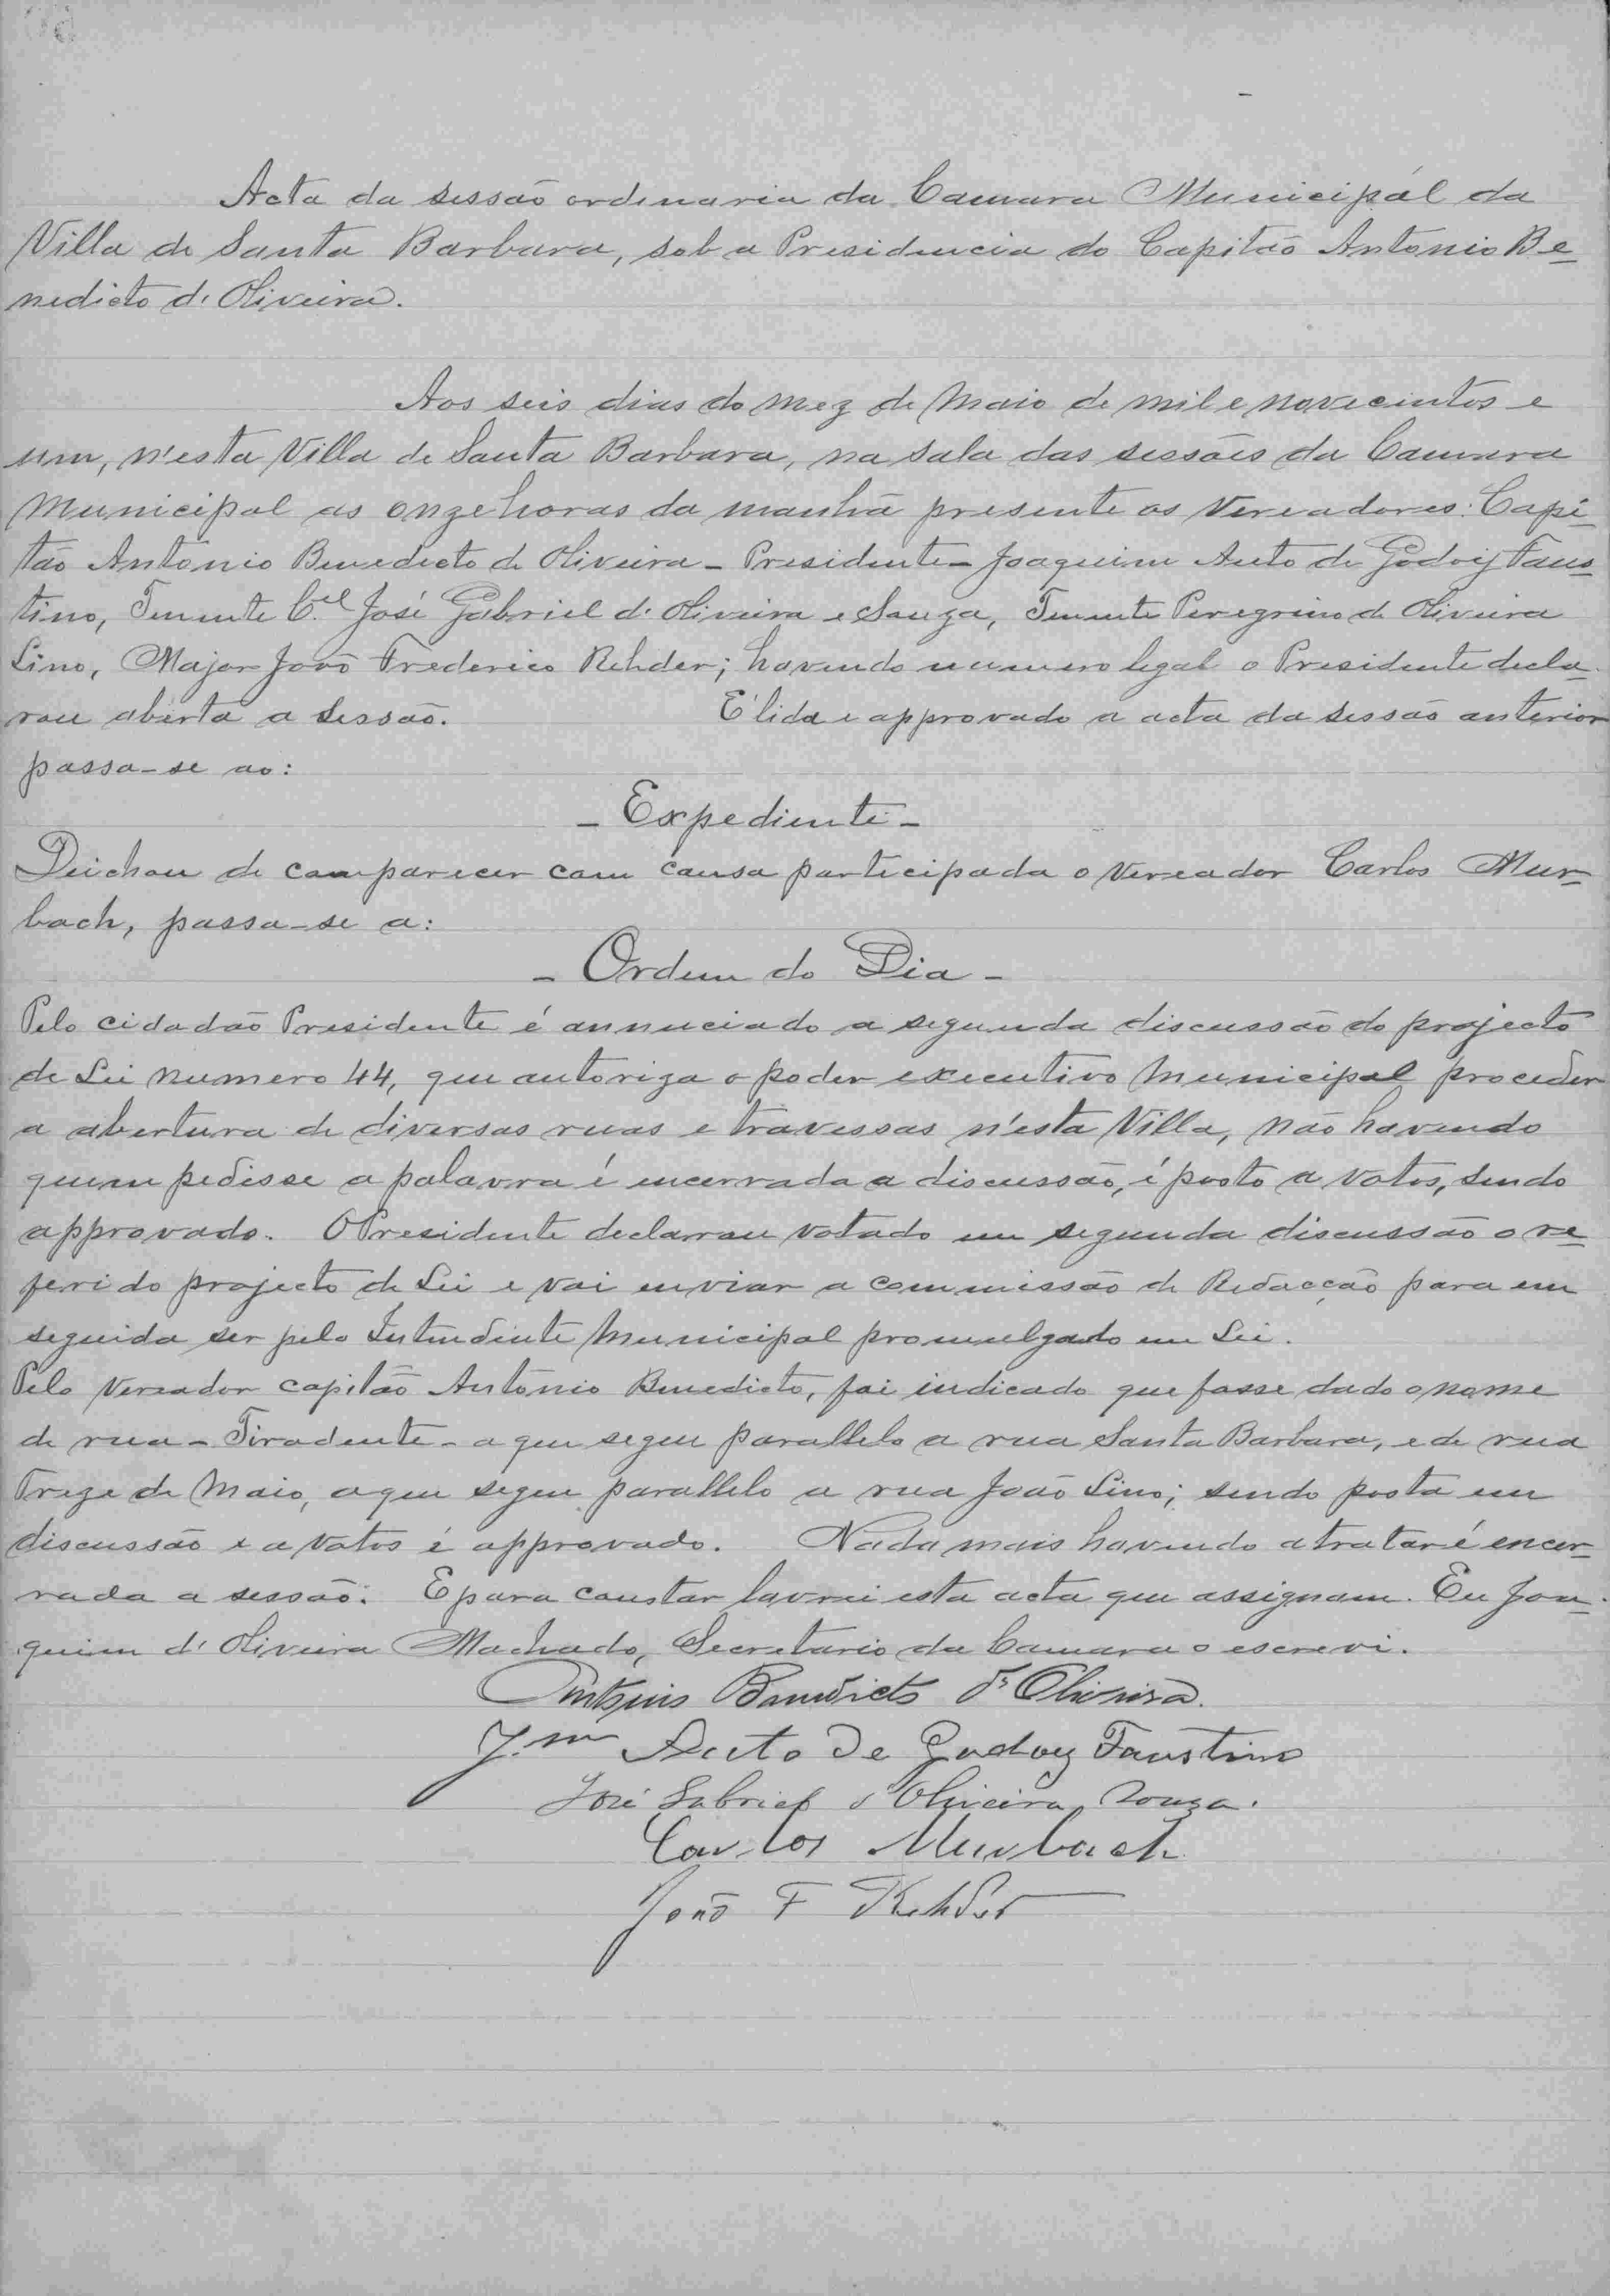 Acta da sessão ordinaria da Camara Municipal da
Villa de Santa Barbara, sob a Presidencia do Capitão Antonio Be
nedicto d' Oliveira.
Aos seis dias do mez de Maio de mil e novecentos e
um, n'esta Villa de Santa Barbara, na sala das sessões da Camara
Municipal as onze horas da manhã presente os Vereadores: Capi
tão Antonio Benedicto de Oliveira - Presidente - Joaquim Auto de Godoy Faus
tino, Tenente C.el José Gabriel d' Oliveira e Souza, Tenente Peregrino de Oliveira
Lino, Major João Frederico Rehder; havendo numero legal o Presidente decla
rou aberta a sessão. E' lida e approvado a acta da sessão anterior
passa-se ao:
- Expediente -
Deichou de comparecer com causa participada o Vereador Carlos Mur
bach, passa-se a:
- Ordem do Dia -
Pelo cidadão Presidente é annuciado a segunda discussão do projecto
de Lei numero 44, que autoriza o poder executivo Municipal proceder
a abertura de diversas ruas e travessas n'esta Villa, não havendo
quem pedisse a palavra é encerrada a discussão, é posto a votos, sendo
approvado. O Presidente declarou votado em segunda discussão o re
ferido projecto de Lei e vai enviar a commissão de Redacção para em
seguida ser pelo Intendente Municipal promulgado em Lei.
Pelo Vereador capitão Antonio Benedicto, foi indicado que fosse dado o nome
de rua - Tiradente - a que segue parallelo a rua Santa Barbara, e de rua
Treze de Maio, a que segue parallelo a rua João Lino; sendo posta em
discussão e a votos é approvado. Nada mais havendo a tratar é encer
rada a sessão. E para constar lavrei esta acta que assignam. Eu Joa
quim d' Oliveira Machado, Secretario da Camara o escrevi.
Antonio Benedicto d' Oliveira.
J.m Auto de Godoy Faustino
José Gabriel d'Oliveira Souza.
Carlos Murbach
João F Rehder